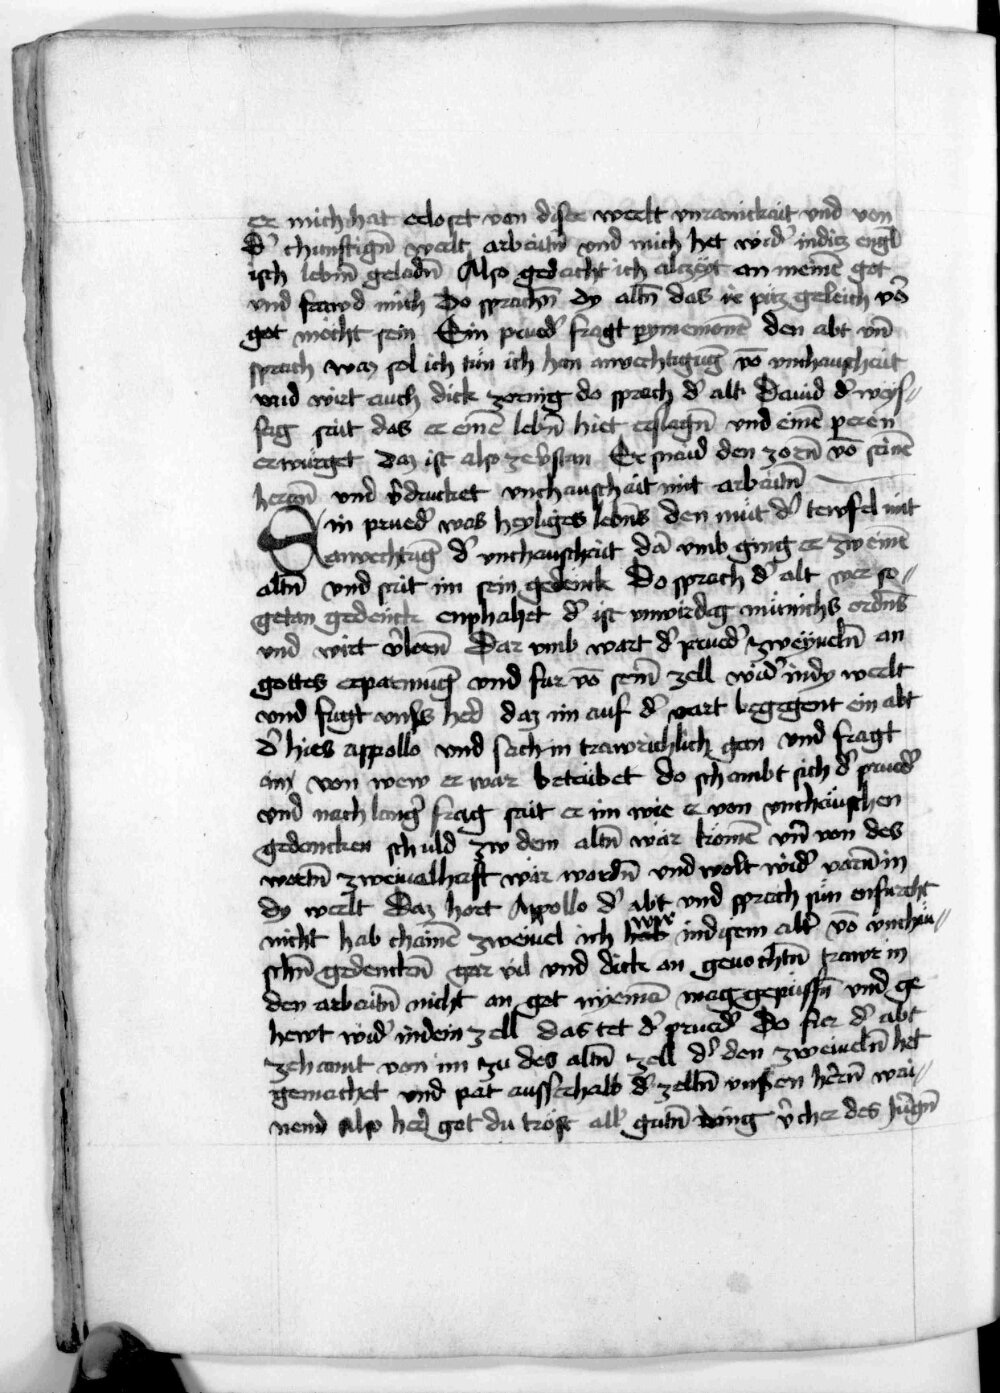 er mich hat erloset von diser werlt vnrainickait vnd von
d' chunftign̄ werlt arbaittn̄ vnd mich het wid' in dicz engl
isch lebn̄ geladn̄ Also gedacht ich alczeyt an meinē got
vnd frawd mich Do sprachn̄ dy altn̄ das ir pitz geleich vō
got mocht sein Ein prued' fragt pymenionē den abt vn̄
sprach waz sol ich tün ich han anvechtigūg vō vnchauschait
vnd wirt auch dick zornig do sprach d' alt Dauid d' weys-
sag sait das er einē lebn̄ hiet erslagn̄ vnd einē peren
erwürget daz ist also ze v'stan Er snaid den zorn̄ vō seinē
herczn̄ vnd v'drucket vnchauschait mit arbaitn̄
Ein prued' was heyliges lebn̄s den müt d' tewfel mit
anvechtūg d' vnchauschait dā vmb ging er zw einē
altn̄ vnd sait im sein gedenck Do sprach d' alt wer so-
getan gedenck enphahet d' ist vnwirdig münichs ordn̄s
vnd wirt v'lorn̄ Dar vmb wart d' prued' zweyueln̄ an
gottes erparmūg vnd fur vō sein̄ zell wid' in dy werlt
vnd fugt vns's hed daz im auf d' vart begegent ein abt
d' hies appollo vnd sach in trawrichlich gen vnd fragt
in von wew er war betrübet do schambt sich d' prued'
vnd nach lang' frag sait er im wie er von vnchäuschen
gedencken schuld zw dem altn̄ wär kömē vn̄ von des
wortn̄ zweiualhaft wär wordn̄ vnd wolt wid' varn̄ in
dy werlt Daz hort Appollo d' abt vnd sprach sün enfurcht
nicht hab chainē zweiuel ich wir in disem alt' vō vnchäu-
schn̄ gedenckn̄ gar vil vnd dick an geuochtn̄ trawr in
den arbaitn̄ nicht an got nyemā mag gepüssn̄ vnd ge
hewt wid' in dein zell das tet d' prued' Do fur d' abt
zehannt von im zu des altn̄ zell d' den zweiueln̄ het
gemachet vnd pat ausserhalb d' zelln̄ vnsern hern̄ wai-
nend Also her' got du tröst all' gutn̄ ding v'cher des jūgn̄